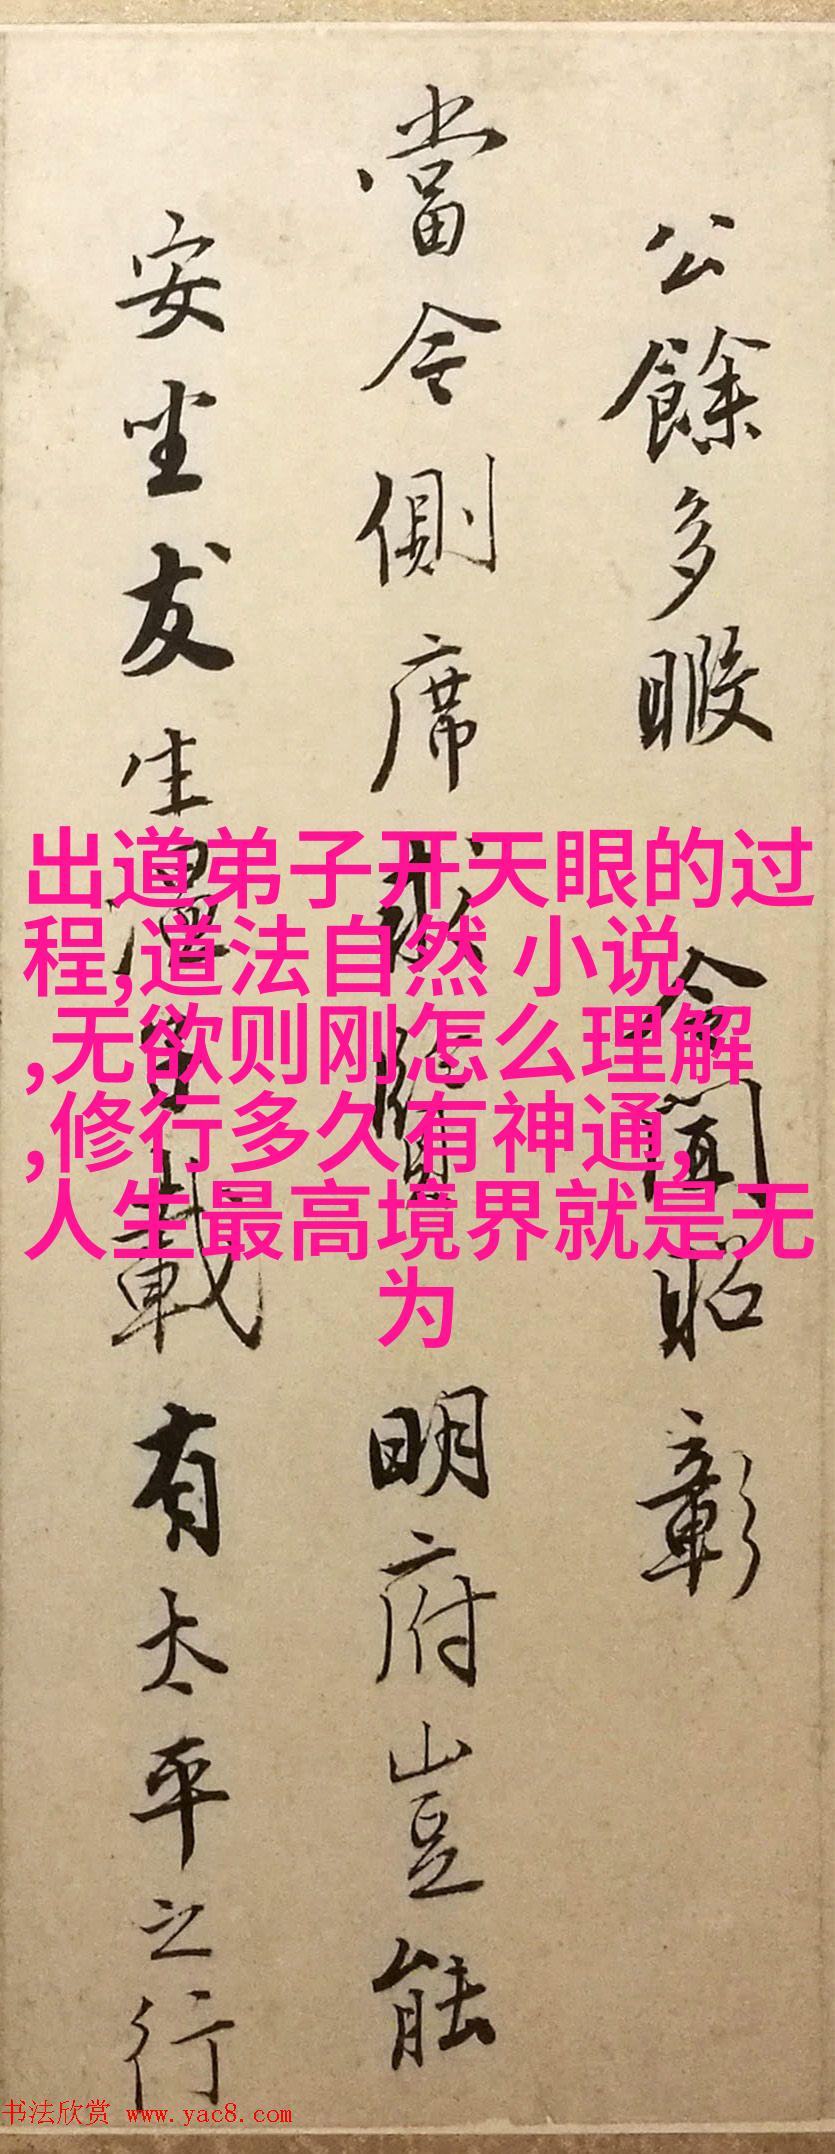 公餘多暇 令聞昭彰
當今側席求賢 明府豈能
安坐友生載有太平之行
出道弟子开天眼的过
程,道法自然 小说
,无欲则刚怎么理解
,修行多久有神通,
人生最高境界就是无
为
书法欣赏 www.yac8.com